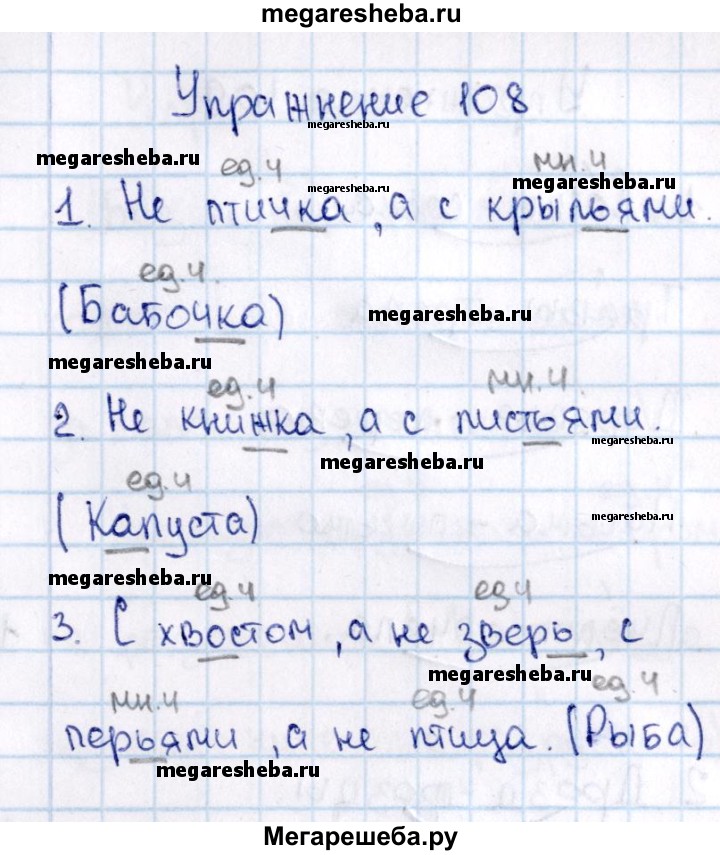 megaresheba.ru
Упражнение 108
megaresheba.ru
megaresheba.ru
ед.ч мн.ч
megaresheba.ru
megaresheba.ru
1. Не птичка, а с крыльями.
ед.ч.
(Бабочка)
megaresheba.ru
megaresheba.ru
ед.ч мн.ч.
2. Не книжка, а с листьями.
megaresheba.ru
megaresheba.ru
ед.ч
(Капуста)
megaresheba.ru
megaresheba.ru
ед.ч ед.ч
3. С хвостом, а не зверь, с
megaresheba.ru
мн.ч ед.ч ед.ч.
перьями, а не птица. (Рыба)
megaresheba.ru
megaresheba.ru
Мегарешеба.ру